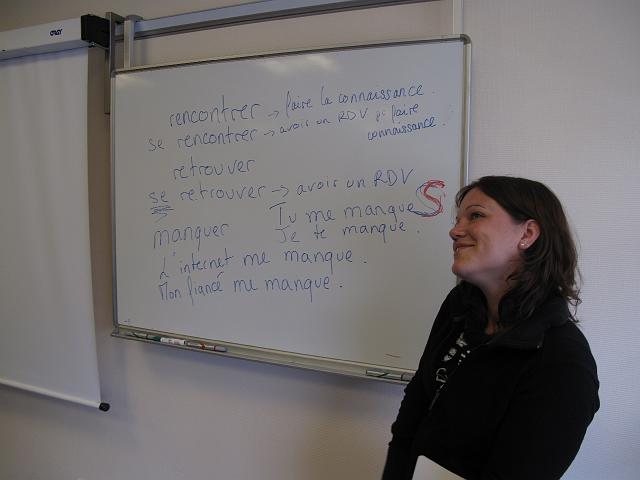 rencontrer → faire la connaissance.
se rencontrer → avoir un RDV faire
connaissance.
retrouver
se retrouver → avoir un RDV
manquer Tu me manques
Je te manque.
L'internet me manque.
Mon fiancé me manque.